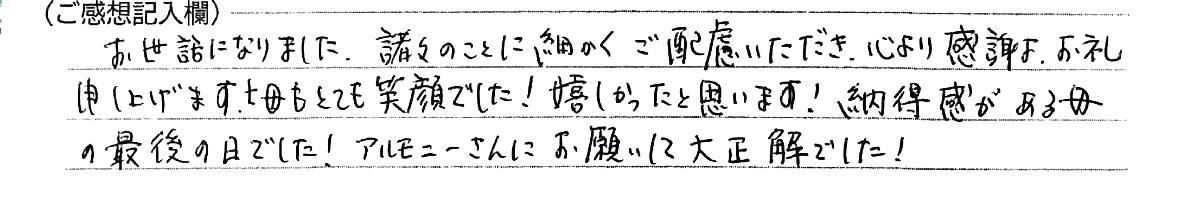 (ご感想記入欄)
お世話になりました。諸々のことに細かくご配慮いただき、心より感謝と、お礼
申し上げます。母もとても笑顔でした!嬉しかったと思います!納得感がある母
の最後の日でした!アルモニーさんにお願いして大正解でした!